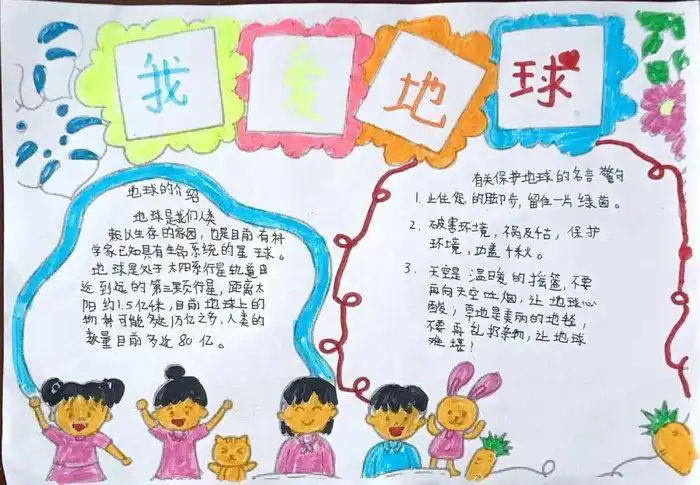 我爱地球
地球的介绍
地球是我们人类
赖以生存的家园，也是目前有科
学家已知具有生命系统的星球。
地球是处于太阳系行星轨道由
近到远的第三颗行星，距离太
阳约1.5亿千米，目前地球上的
物种可能多达1万亿之多，人类的
数量目前多近80亿。
有关保护地球的名言警句
1.止住您的脚步，留住一片绿茵。
2. 破害环境，祸及千古，保护
环境，功盖千秋。
3. 天空是温暖的摇篮，不要
再向天空吐烟，让地球心
酸，草地是美丽的地毯，
不要再乱扔杂物，让地球
难堪！